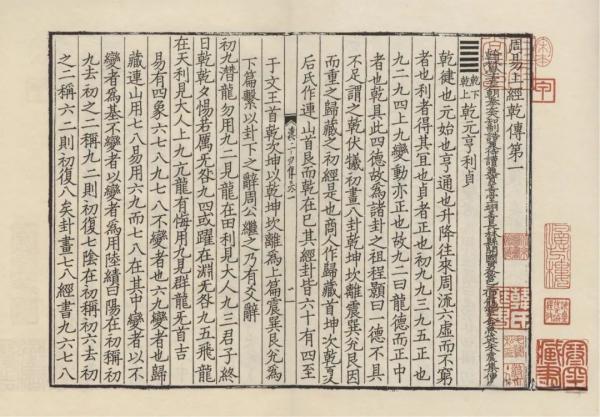 周易上經乾傳第一
乾下
乾上
乾元亨利貞
乾健也元始也亨通也升降往來周流六虛而不窮
者也利者得其宜也貞者正也初九九三九五正也
九二九四上九變動亦正也故九二曰龍德而正中
者也乾具此四德故為諸卦之祖程顥曰一德不具
不足謂之乾伏犧初畫八卦乾坤坎離震巽艮兌因
而重之歸藏之初經是也商人作歸藏首坤次乾夏
后氏作連山首艮而乾在巳其經卦皆六十有四至
于文王首乾次坤以乾坤坎離為上篇震巽艮兌為
下篇繫以卦下之辭周公繼之乃有爻辭
初九潛龍勿用九二見龍在田利見大人九三君子終
日乾乾夕惕若厲无咎九四或躍在淵无咎九五飛龍
在天利見大人上九亢龍有悔用九見群龍无首吉
易有四象六七八九七八不變者也六九變者也歸
藏連山用七八易用六九而七八在其中變者以不
變者為基不變者以變者為用陸績曰陽在初稱初
九去初之二稱九二則初復七陰在初稱初六去初
之二稱六二則初復八矣卦畫七八經書九六七八